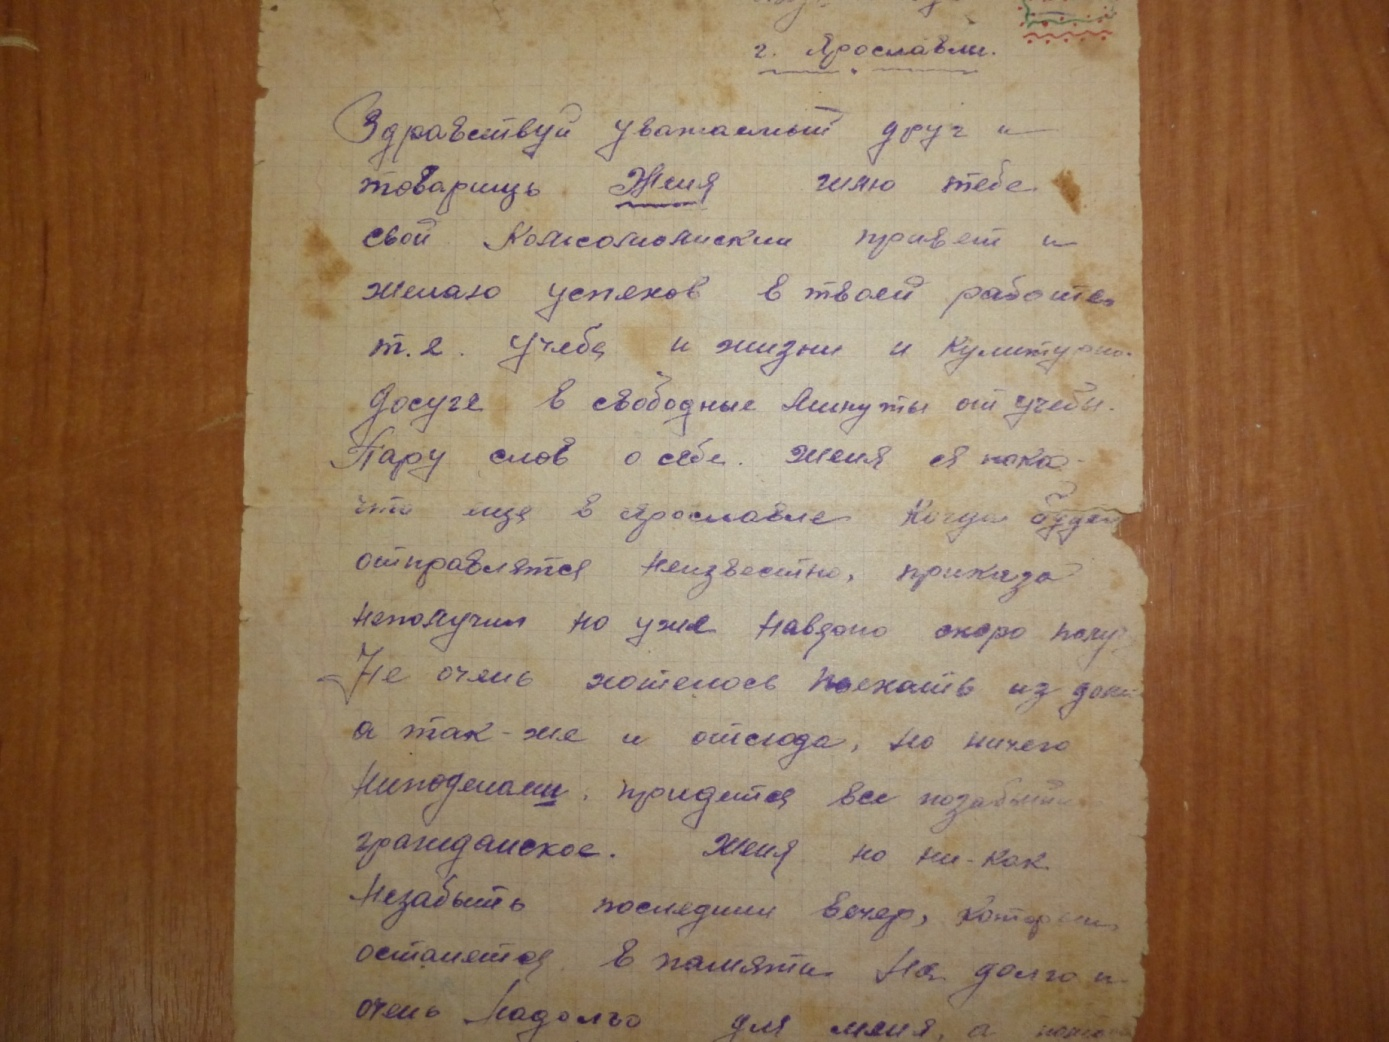 г. Ярославль.
Здравствуй уважаемый друг и
товарищь Женя шлю тебе
свой Комсомольский привет и
желаю успехов в твоей работе
т.е. учебе и жизни и культурно
досуге в свободные минуты от учебы.
Пару слов о себе. Женя я пока-
что еще в Ярославле Когда будем
отправлятся Неизвестно, приказа
неполучил но уже Навядно скоро
Не очень хотелось Поехать из
а так-же и отсюда, но ничего
Ниподелаеш, придется все позабыть
гражданское. Женя но ни-как
Незабыть последний вечер,
останется в памяти На долго и
очень Надолго для меня, а